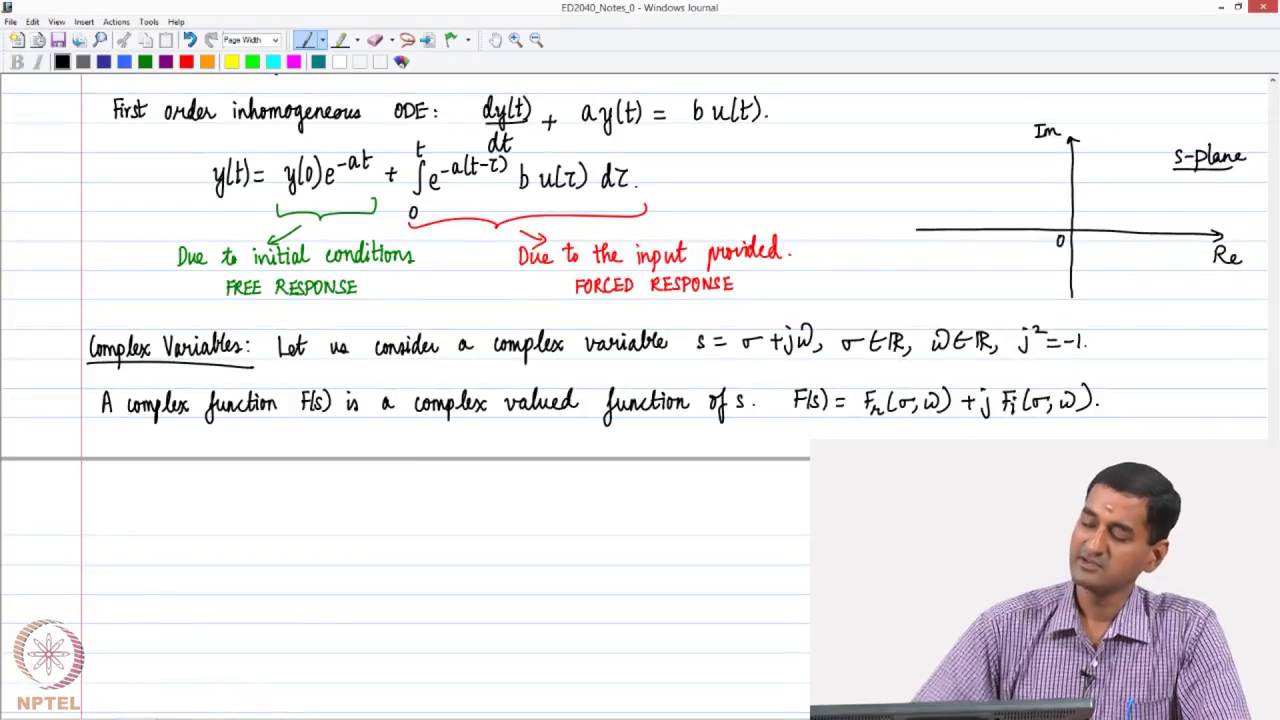 ED2040_Notes_0 - Windows Journal
File Edit View Insert Actions Tools Help
Page Width
B I
First order inhomogeneous ODE: dy(t)/dt + ay(t) = b u(t).
y(t) = y(0)e^{-at} + ∫_0^t e^{-a(t-τ)} b u(τ) dτ.
Due to initial conditions
FREE RESPONSE
Due to the input provided.
FORCED RESPONSE
Im
s-plane
0
Re
Complex Variables: Let us consider a complex variable s = σ + jω, σ ∈ ℝ, ω ∈ ℝ, j² = -1.
A complex function F(s) is a complex valued function of s. F(s) = F_r(σ, ω) + j F_i(σ, ω).
NPTEL